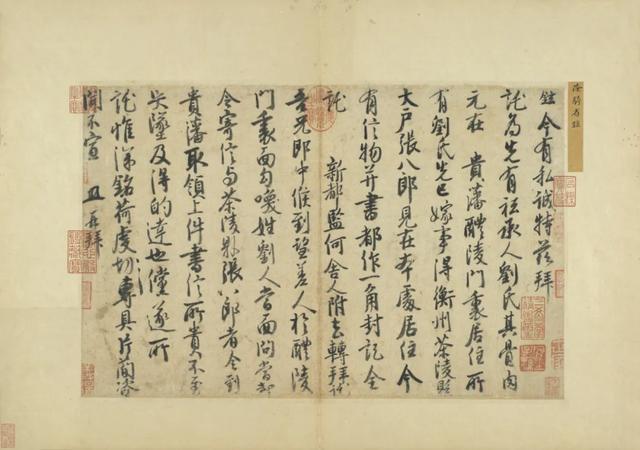 徐騎省鉉
鉉今有私誠特茲拜
託為先有祗承人劉氏其骨肉
元在 貴藩醴陵門裏居住所
有劉氏先已嫁事得衡州茶陵縣
大戶張八郎見在本處居住今
有信物并書都作一角封記全
託 新都監何舍人附去轉拜託
吾兄郎中候到望差人於醴陵
門裏面勾喚姓劉人當面問當卻
令寄信與茶陵縣張八郎者令到
貴藩取領上件書信所貴不至
失墜及得的達也儻遂所
託惟深銘荷虔切專具片簡諮
聞不宣 再拜